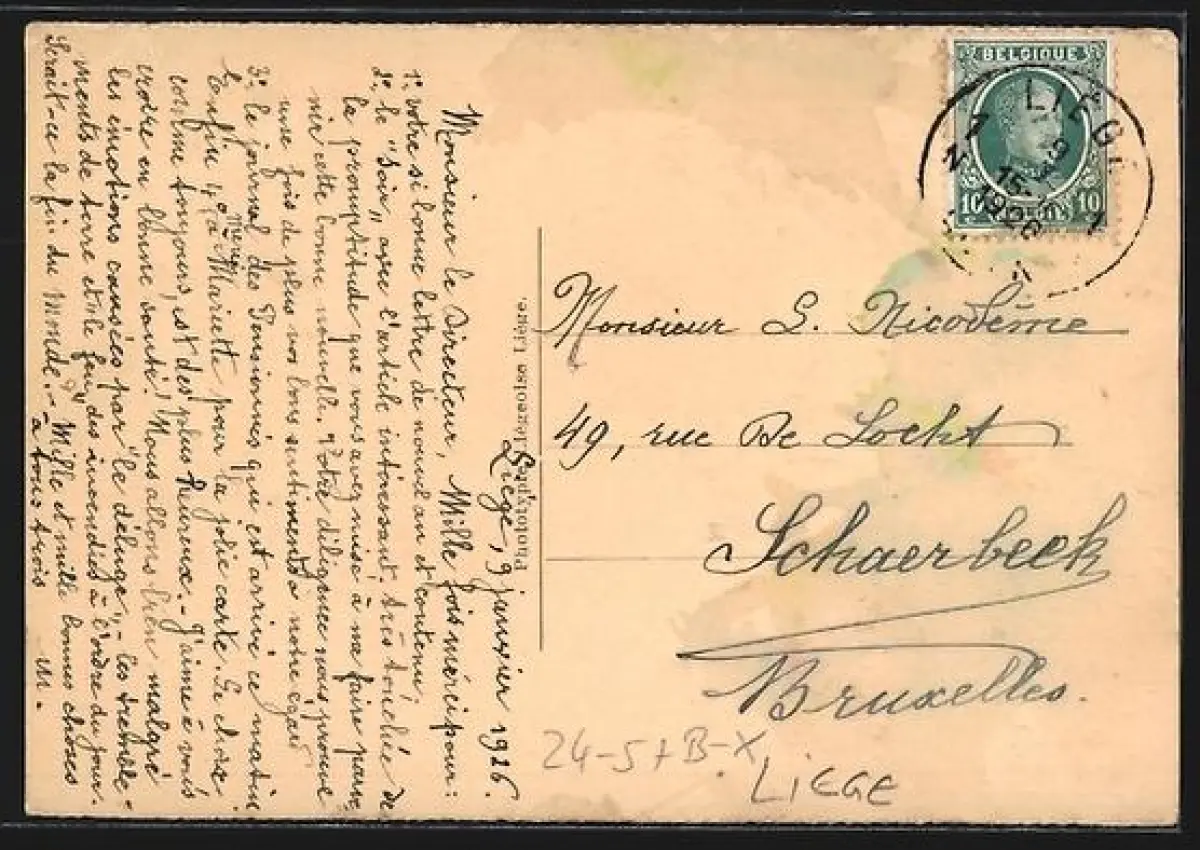 Liège, 9 janvier 1926.
Monsieur le Directeur, Mille fois merci pour:
1º votre si bonne lettre de nouvel an et contenu,
2º le "Soir", avec l'article intéressant, très touchée de
la promptitude que vous avez mise à me faire parve
nir cette bonne nouvelle. Votre diligence nous prouve
une fois de plus vos bons sentiments à notre égard
3º le journal des Pensionnés qui est arrivé ce matin
Enfin 4º à Mariette pour la jolie carte. Le choix
comme toujours, est des plus heureux. - J'aime à vous
croire en bonne santé! Nous allons bien malgré
les émotions causées par "le déluge", - les tremble-
ments de terre et "le feu", des incendies à l'ordre du jour.
Serait-ce la fin du monde? - Mille et mille bonnes choses
à tous trois
M.
Phototypie Légeoise Liége.
BELGIQUE
10 10
LIEGE
1926
Monsieur L. Nicodême
49, rue De Locht
Schaerbeek
Bruxelles.
24-5+B-X
LIEGE